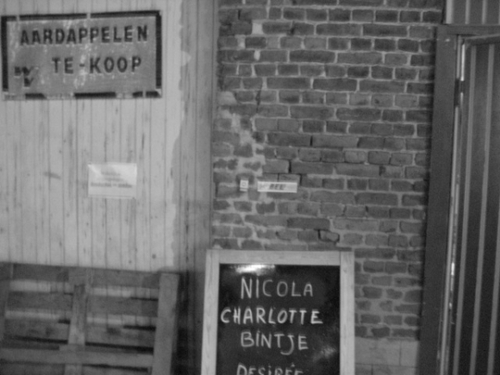 AARDAPPELEN
TE-KOOP
NICOLA
CHARLOTTE
BINTJE
DESIRÉE